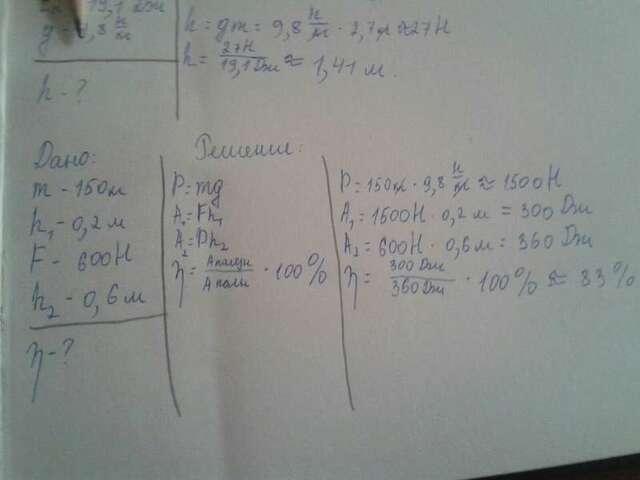 19,1 Дж
g - 9,8 н/м
h - ?
h = gm = 9,8 н/м · 2,7 кг ≈ 27 Н
h = 27Н/19,1 Дж ≈ 1,41 м.
Дано:
m - 150 кг
h₁ - 0,2 м
F - 600 Н
h₂ - 0,6 м
η - ?
Решение:
P = mg
A₁ = Fh₁
A₂ = Ph₂
η = / · 100%
P = 150 кг · 9,8 н/кг ≈ 1500 Н
A₁ = 1500 Н · 0,2 м = 300 Дж
A₂ = 600 Н · 0,6 м = 360 Дж
η = 300 Дж/360 Дж · 100% ≈ 83%